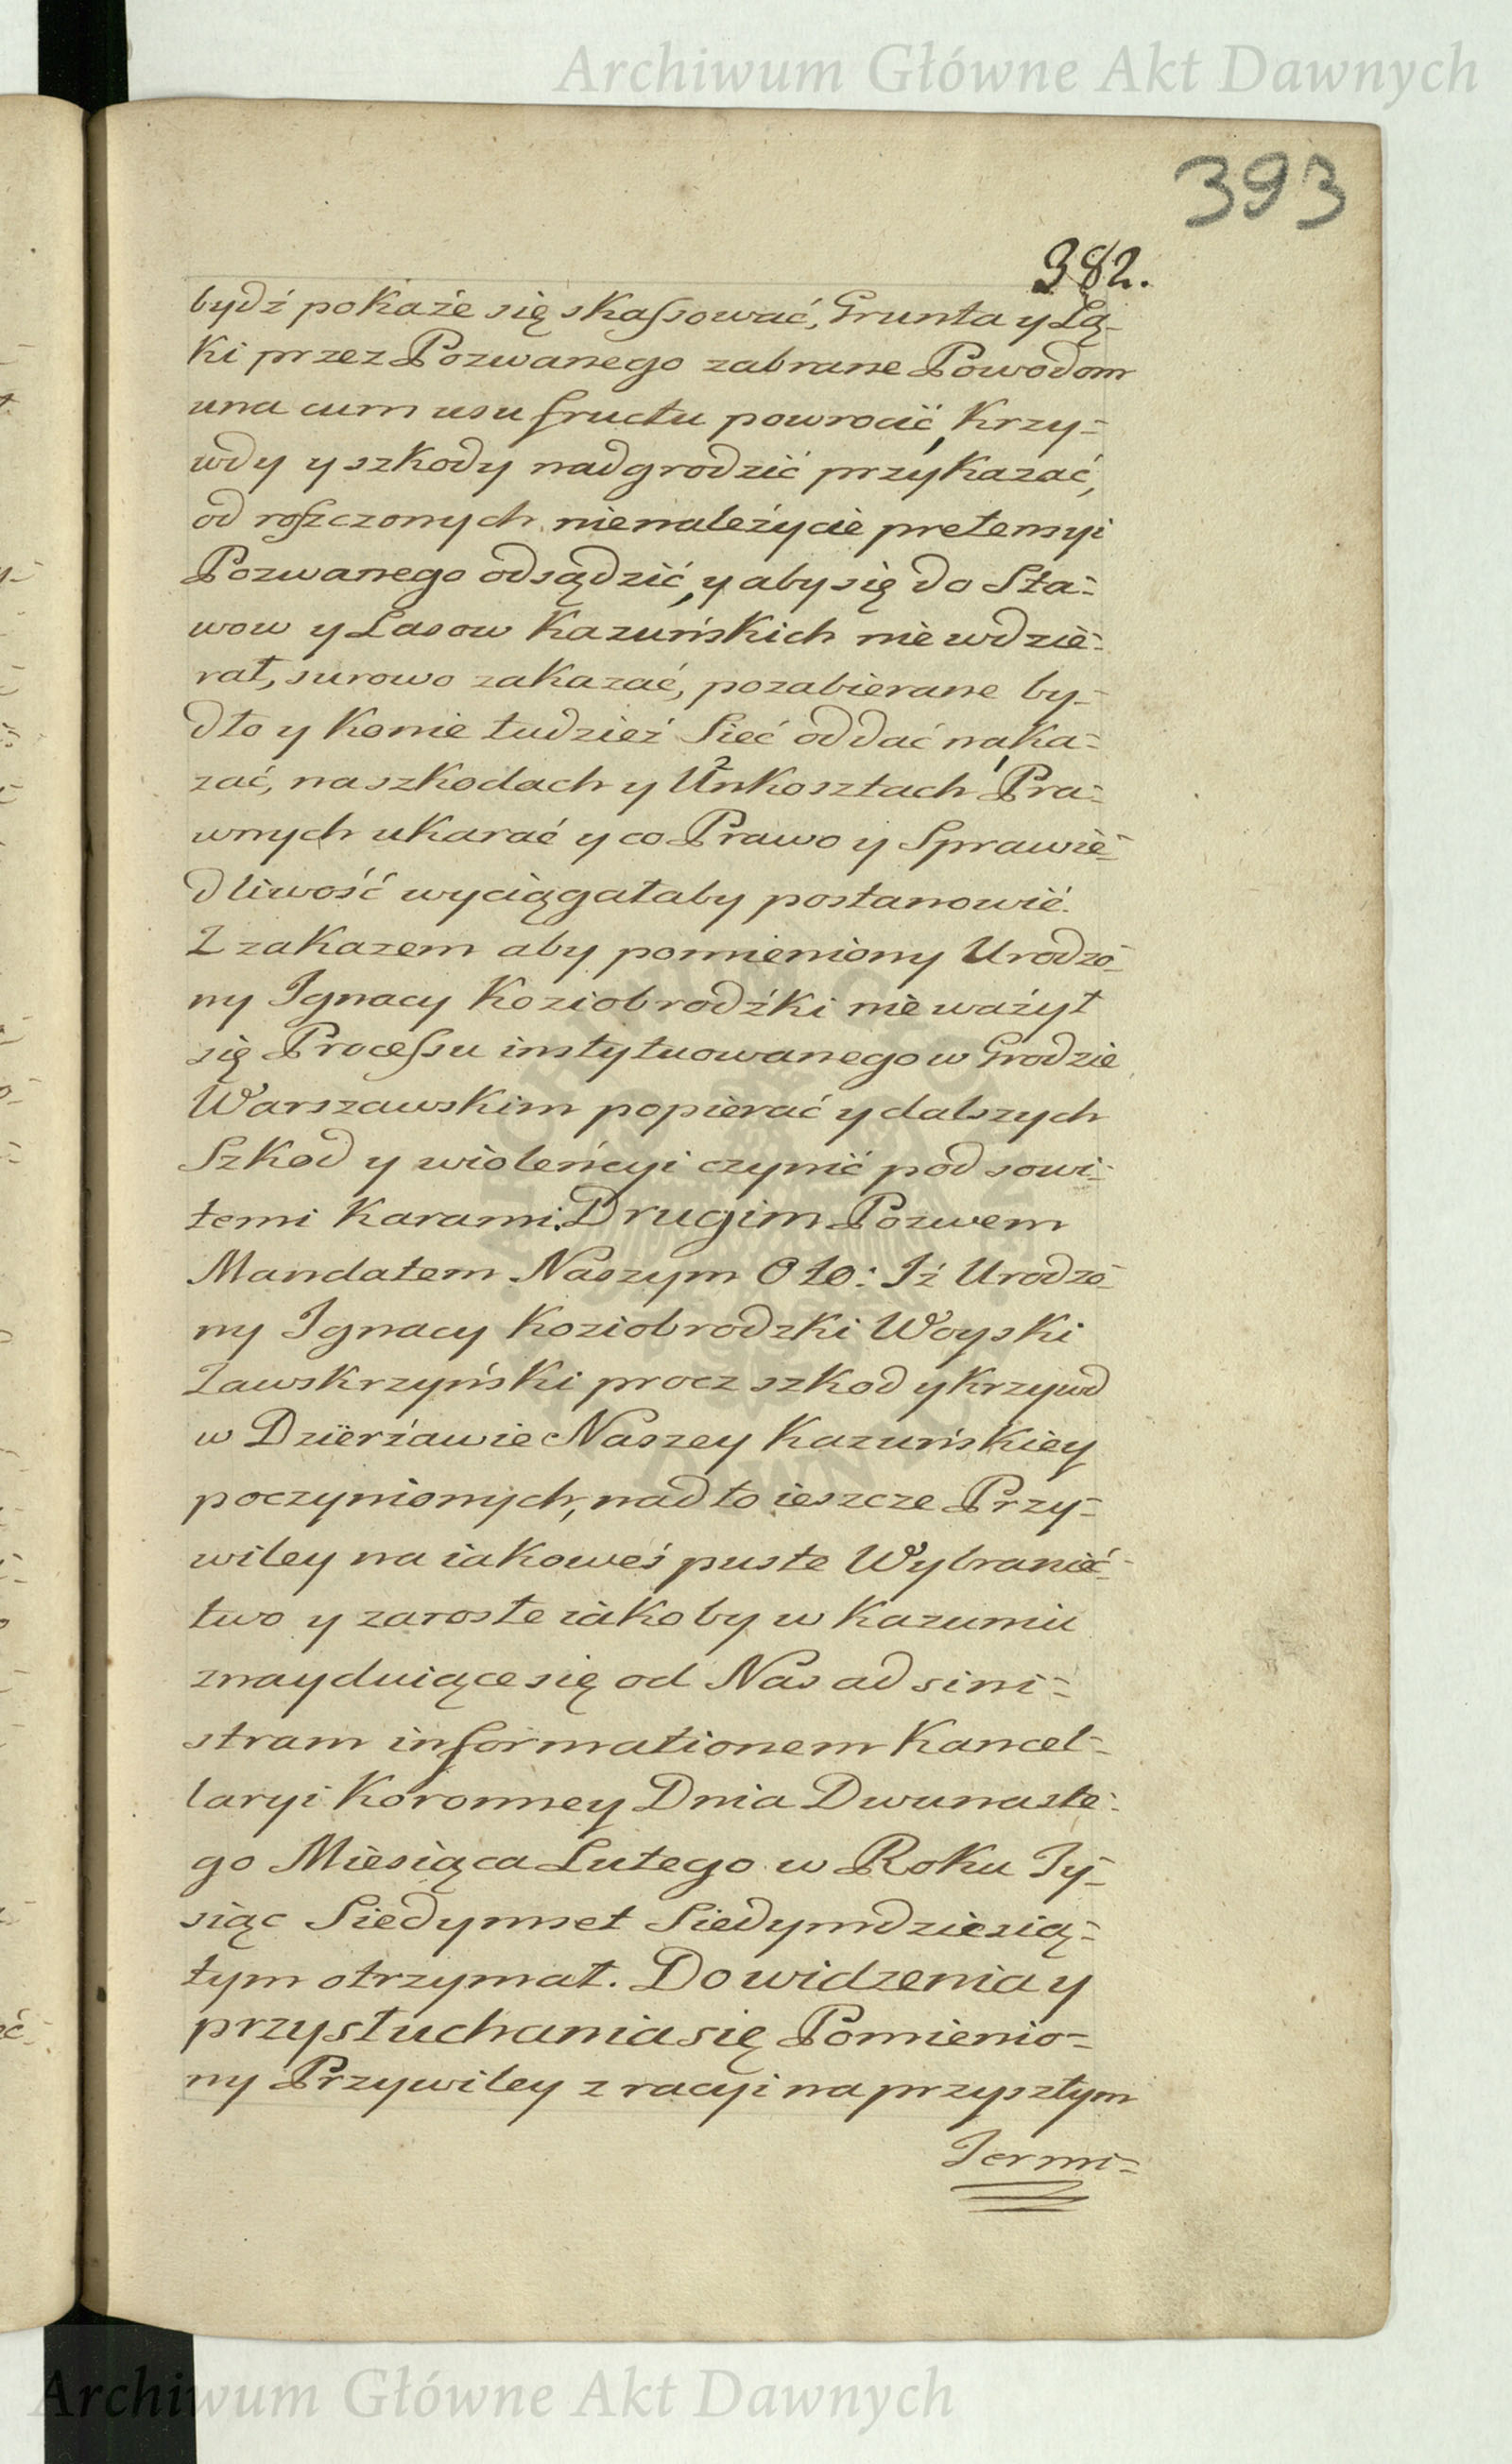 Archiwum Główne Akt Dawnych
393
382.
bydź pokaże się skassować, Grunta y Łą-
ki przez Pozwanego zabrane Powodom
una cum usu fructu powrocić, Krzy-
wdy y szkody nadgrodzić przykazać,
od roszczonych nienależycie pretensyi
Pozwanego odsądzić, y aby się do Sta-
wow y Lasow Kazuńskich nie wdzie-
rał, surowo zakazać, pozabierane by-
dło y Konie tudzież Sieć oddać naka-
zać, na szkodach y Unkosztach Pra-
wnych ukarać y co Prawo y Sprawie-
dliwość wyciągałaby postanowić.
Z zakazem aby pomieniony Urodzo-
ny Ignacy Koziobrodźki nie ważył
się Processu instytuowanego w Grodzie
Warszawskim popierać y dalszych
Szkod y wioleńcyi czynić pod sowi-
temi Karami. Drugim Pozwem
Mandatem Naszym O to: Iż Urodzo-
ny Ignacy Koziobrodzki Woyski
Zawskrzyński procz szkod y Krzywd
w Dzierżawie Naszey Kazuńskiey
poczynionych, nad to ieszcze Przy-
wiley na iakoweś puste Wybranić-
two y zarosłe iakoby w Kazuniu
znayduiące się od Nas ad sini-
stram informationem Kancel-
laryi Koronney Dnia Dwunaste-
go Miesiąca Lutego w Roku Ty-
siąc Siedymset Siedymdziesią-
tym otrzymał. Do widzenia y
przysłuchania się Pomienio-
ny Przywiley z racyi na przyszłym
Termi-
Archiwum Główne Akt Dawnych